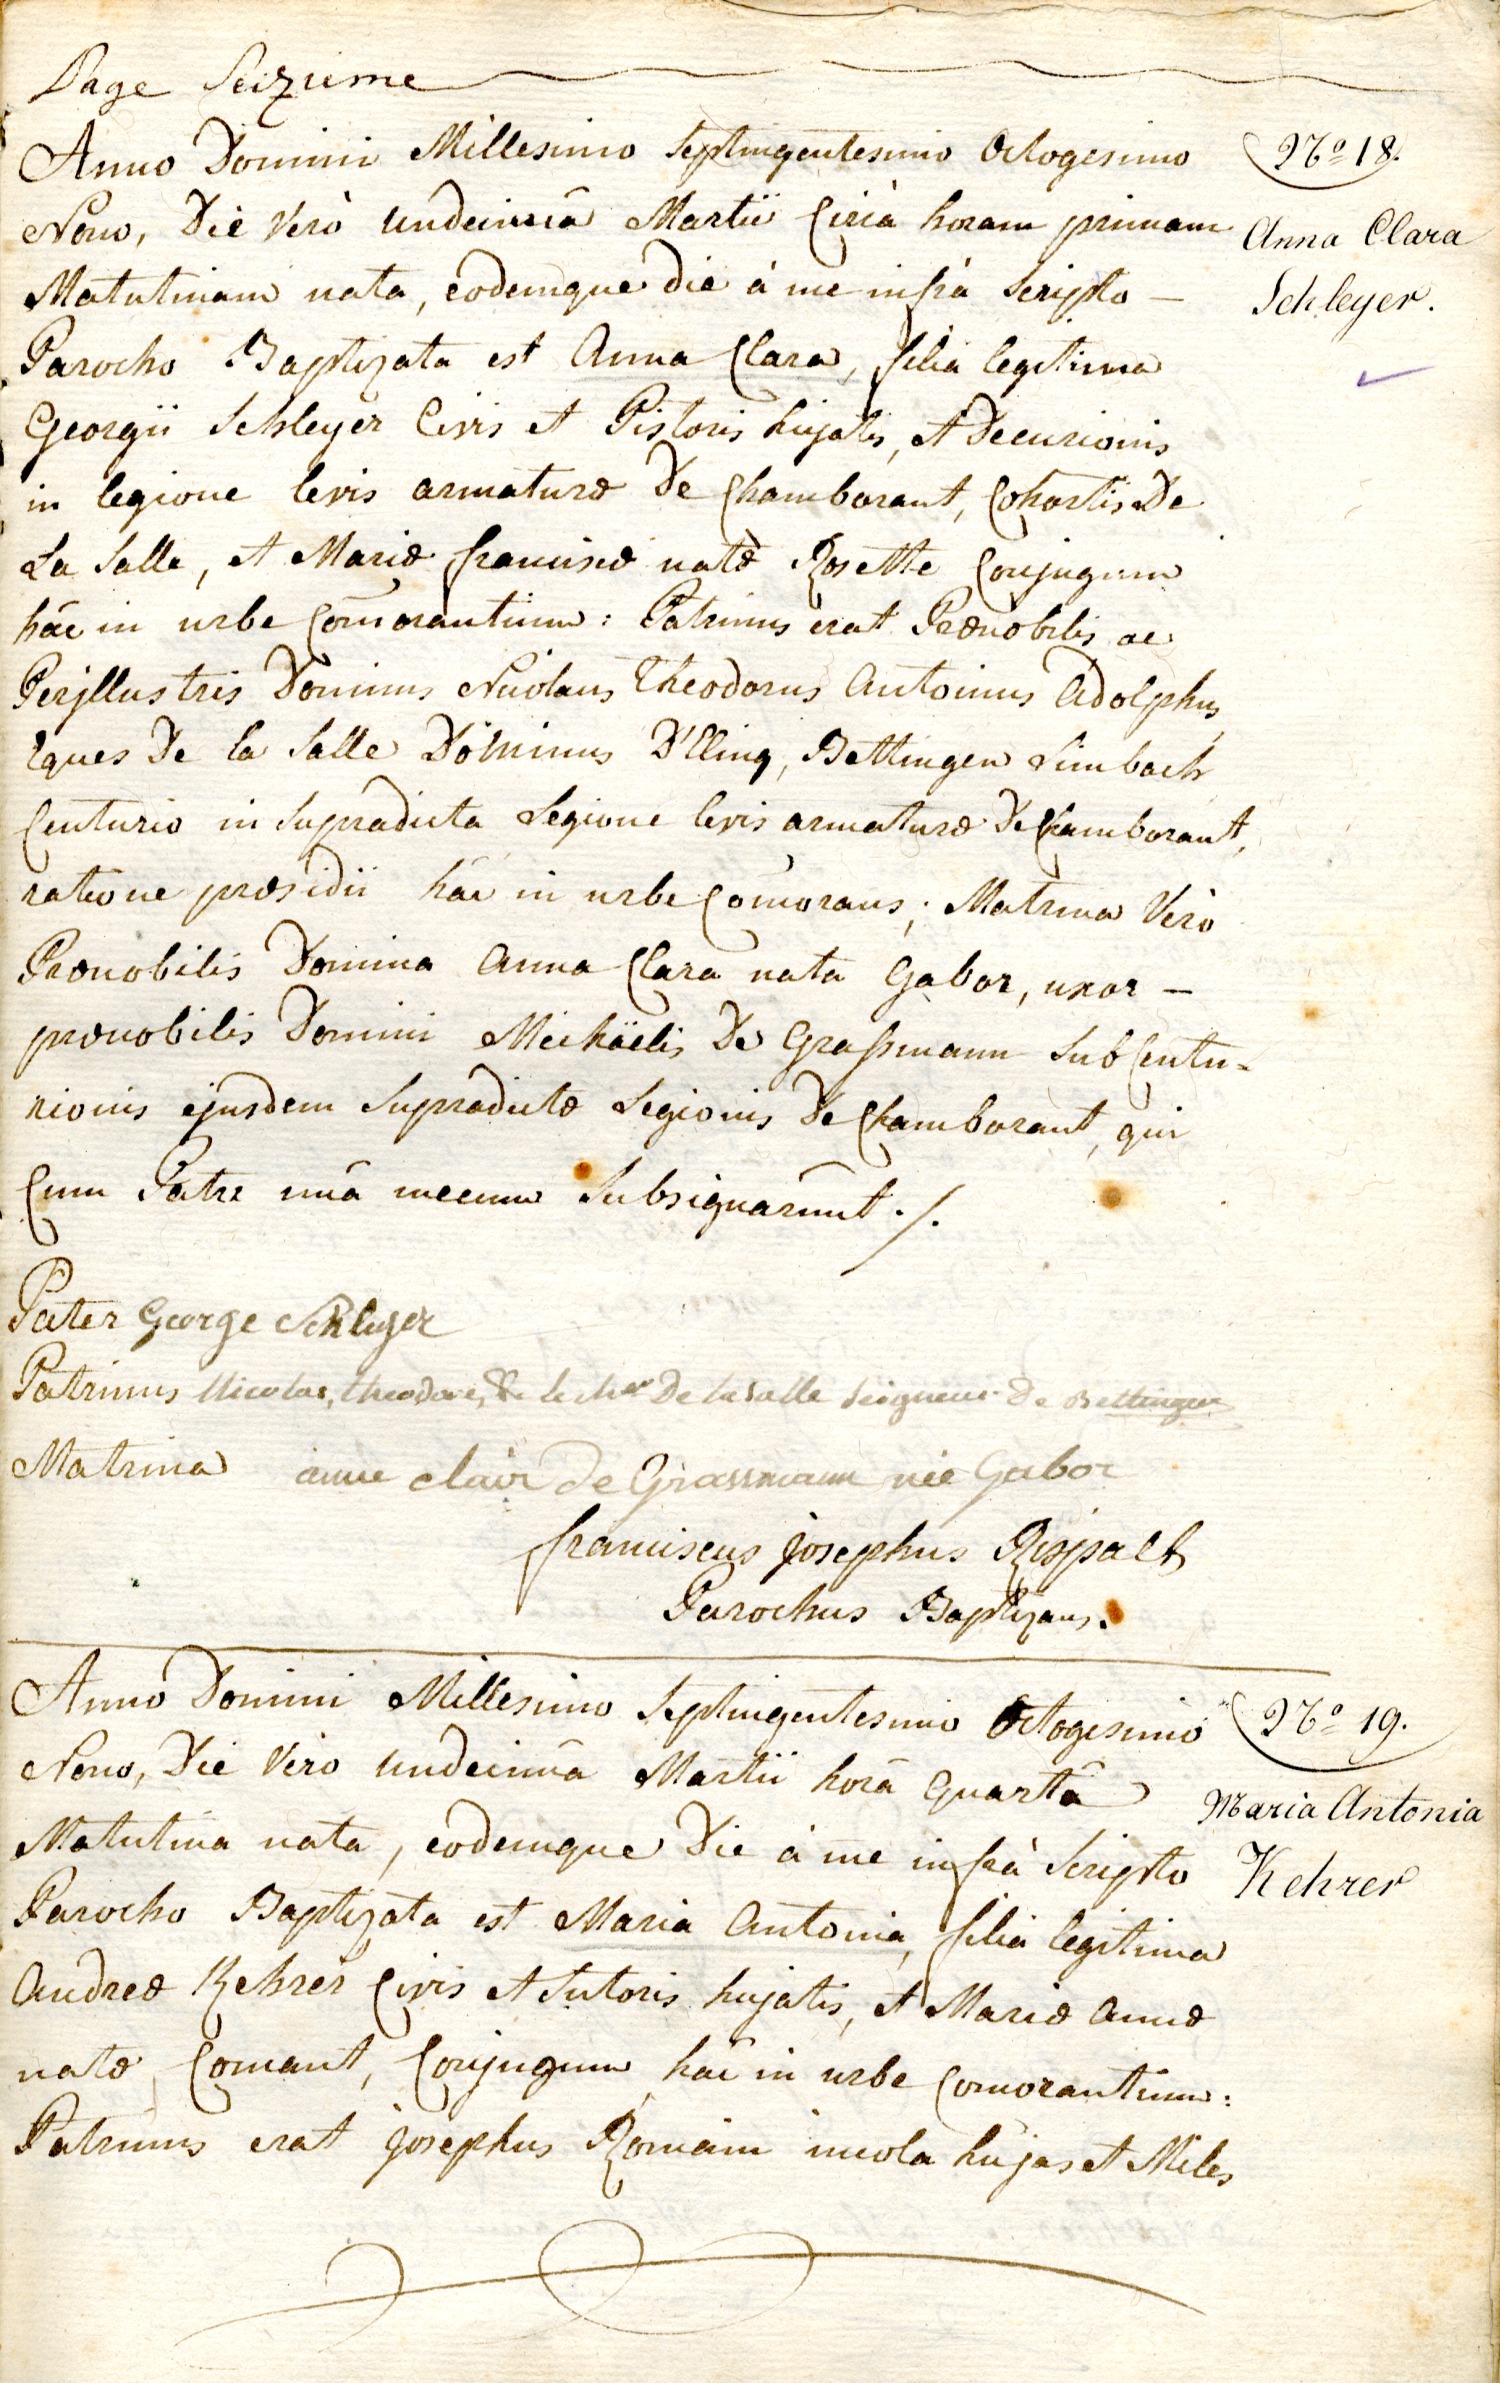 Page Seizieme
Anno Domini Millesimo Septingentesimo Octogesimo
Nº 18.
Nono, Die Verò undecimâ Martii Circà horam primam
Anna Clara
Matutinam nata, eodemque die à me infrà Scripto –
Schleyer.
Parocho Baptizata est Anna Clara, filia legitima
Georgii Schleyer Civis et Pistoris hujatis, et Decurionis
in legione levis armaturæ De Chamborant, Cohortis De
La Salle, et Mariæ franciscæ natæ Rosette Conjugum
hâc in urbe Com̄orantium: Patrinus erat Prænobilis ac
Perjllustris Dominus Nicolaus Theodorus Antoinus Adolphus
Eques De la Salle Dominus D'Eling, Bettingen Limbach
Centurio in Supradicta Legione levis armaturæ De Chamborant,
ratione præsidii hâc in urbe Com̄orans; Matrina Verò
Prænobilis Domina Anna Clara nata Gabor, uxor –
prænobilis Domini Michäelis De Graßmann SubCentu=
rionis ejusdem Supradictæ Legionis De Chamborant, qui
Cum Patre unâ mecum Subsignarunt ./.
Pater George Schleyer
Patrinus Nicolas, theodore, & le cher De la Salle Seigneur De Bettingen
Matrina anne clair de Grassmann née Gabor
franciscus josephus Rispalt
Parochus Baptizans.
Anno Domini Millesimo Septingentesimo Octogesimo
Nº 19.
Nono, Die Vero undecimâ Martii horâ Quartâ
Maria Antonia
Matutina nata, eodemque Die à me infrà Scripto
Kehrer
Parocho Baptizata est Maria Antonia, filia legitima
Andreæ Kehrer Civis et Sutoris hujatis, et Mariæ Annæ
natæ Comant, Conjugum hâc in urbe Comorantium:
Patrinus erat josephus Romain incola hujas et Miles